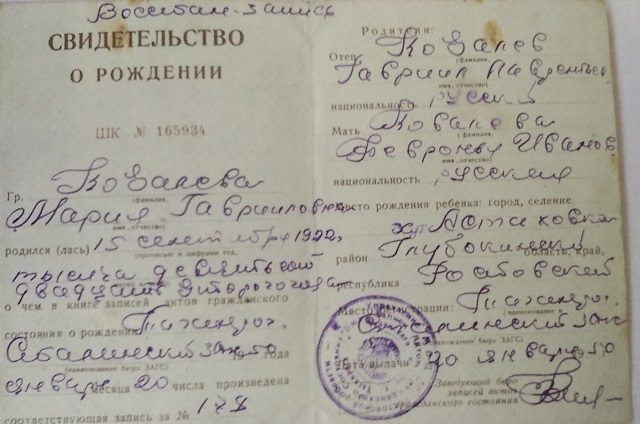 Восстан. запись
СВИДЕТЕЛЬСТВО
О РОЖДЕНИИ
ШК № 165934
Гр. Ковалева
(фамилия,
Мария Гавриловна
имя, отчество)
родился (лась) 15 сентября 1922
(прописью и цифрами год,
тысяча девятьсот
двадцать второго года
о чем в книге записей актов гражданского
состояния о рождении
(наименование бюро ЗАГС)
года
января месяца 20 числа произведена
соответствующая запись за № 178
Родители:
Отец Ковалев
(фамилия,
Гавриил
имя, отчество)
национальность русский
Мать Ковалева
(фамилия,
Иванов
имя, отчество)
национальность русская
Место рождения ребенка: город, селение
район Глубокинский
область, край,
республика Ростовской
Место регистрации:
(наименование бюро ЗАГС)
Дата выдачи 20 января 50
Заведующий бюро
записей актов
гражданского состояния